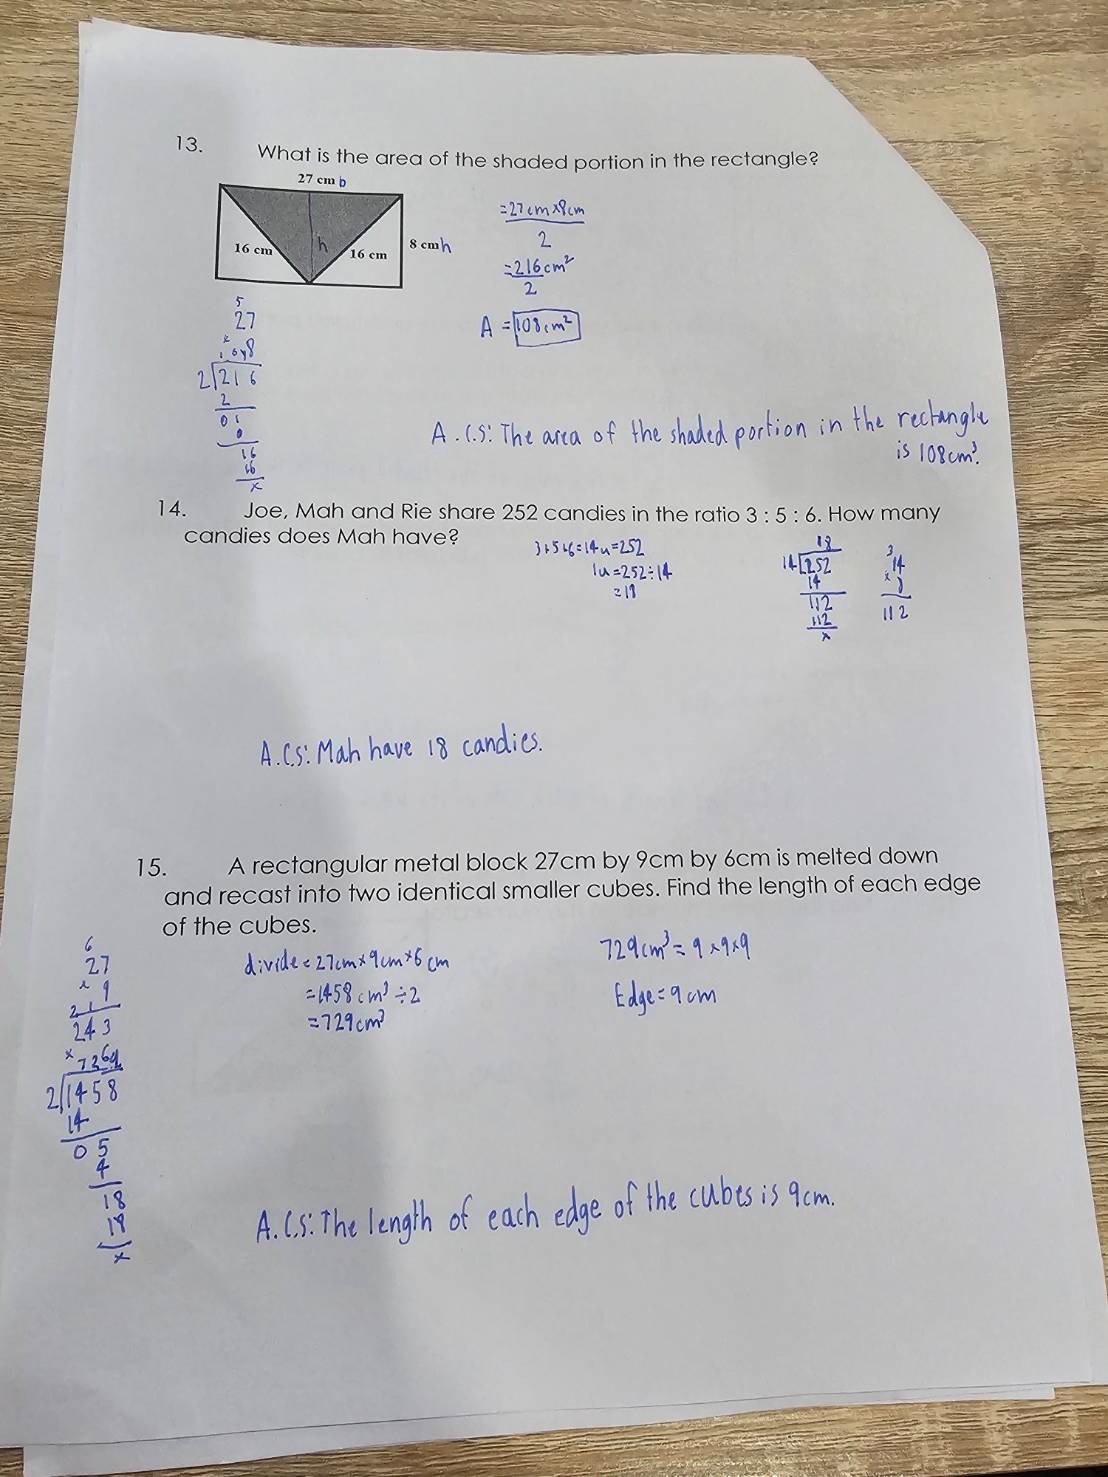 13. What is the area of the shaded portion in the rectangle?
27 cm b
16 cm
h
16 cm
8 cm h
=27cm×8cm
2
=216cm²
2
A = 108cm²
5
27
×
1 0 8
2 216
2
0 1
0
16
16
×
A.C.S: The area of the shaded portion in the rectangle
is 108cm³.
14. Joe, Mah and Rie share 252 candies in the ratio 3 : 5 : 6. How many
candies does Mah have?
3+5+6=14u=252
1u=252÷14
=18
18
14 252
14
112
112
×
3
14
×
112
A.C.S: Mah have 18 candies.
15. A rectangular metal block 27cm by 9cm by 6cm is melted down
and recast into two identical smaller cubes. Find the length of each edge
of the cubes.
6
27
× 9
243
×
2 1458
14
0 5
4
18
18
×
divide = 27cm×9cm×6cm
=1458cm³÷2
=729cm³
729cm³=9×9×9
Edge=9cm
A.C.S: The length of each edge of the cubes is 9cm.